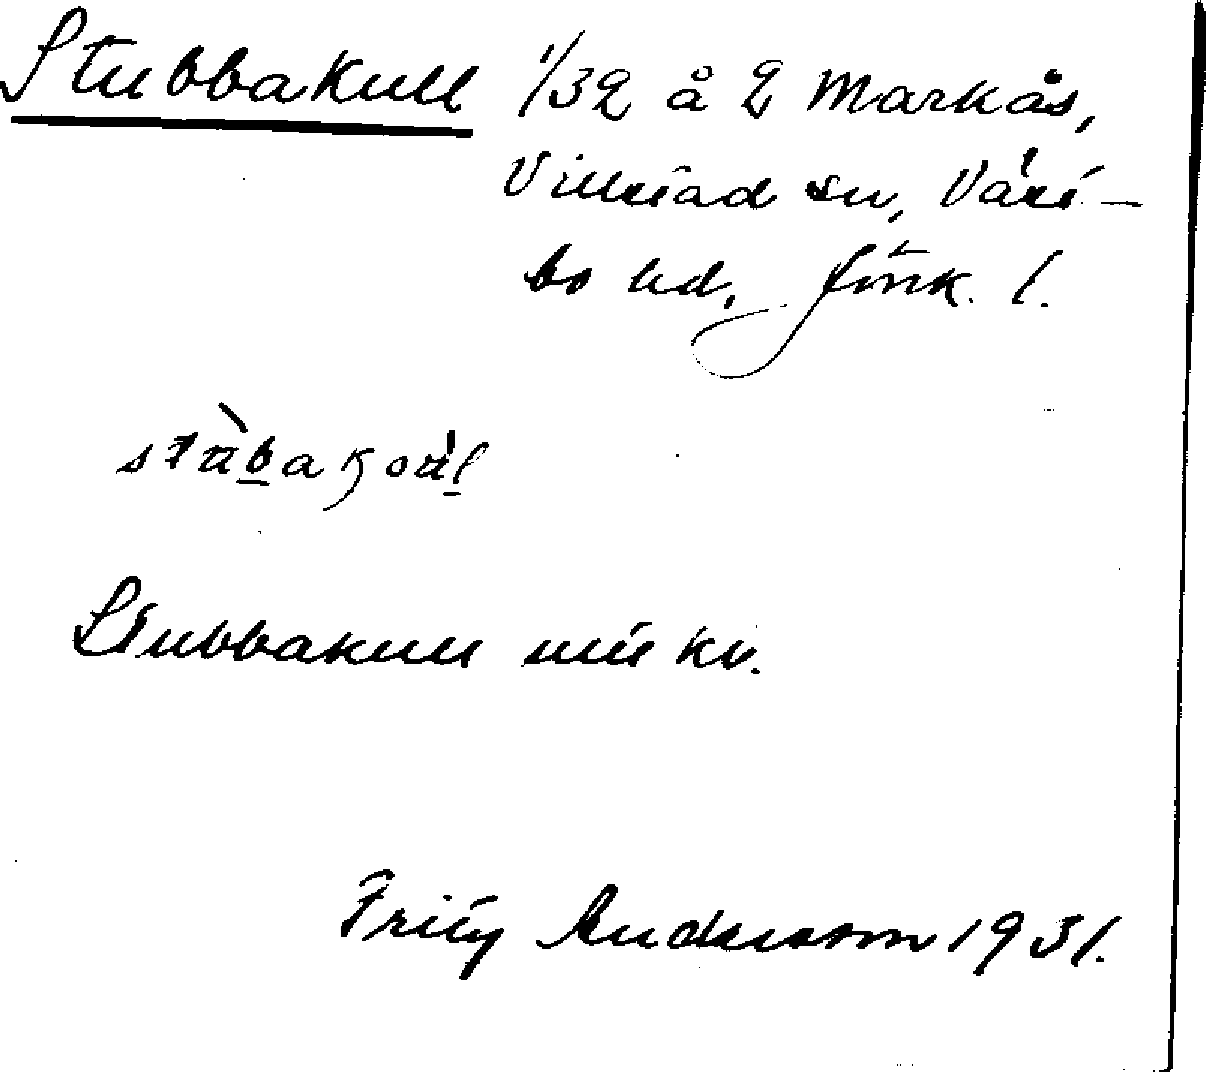 Stubbakull 1/32 å 2 Markås,
Villstad sn, Västbo hd, Jönk. l.
Stubbakull mtl kv.
Fritz Andersson 1931.